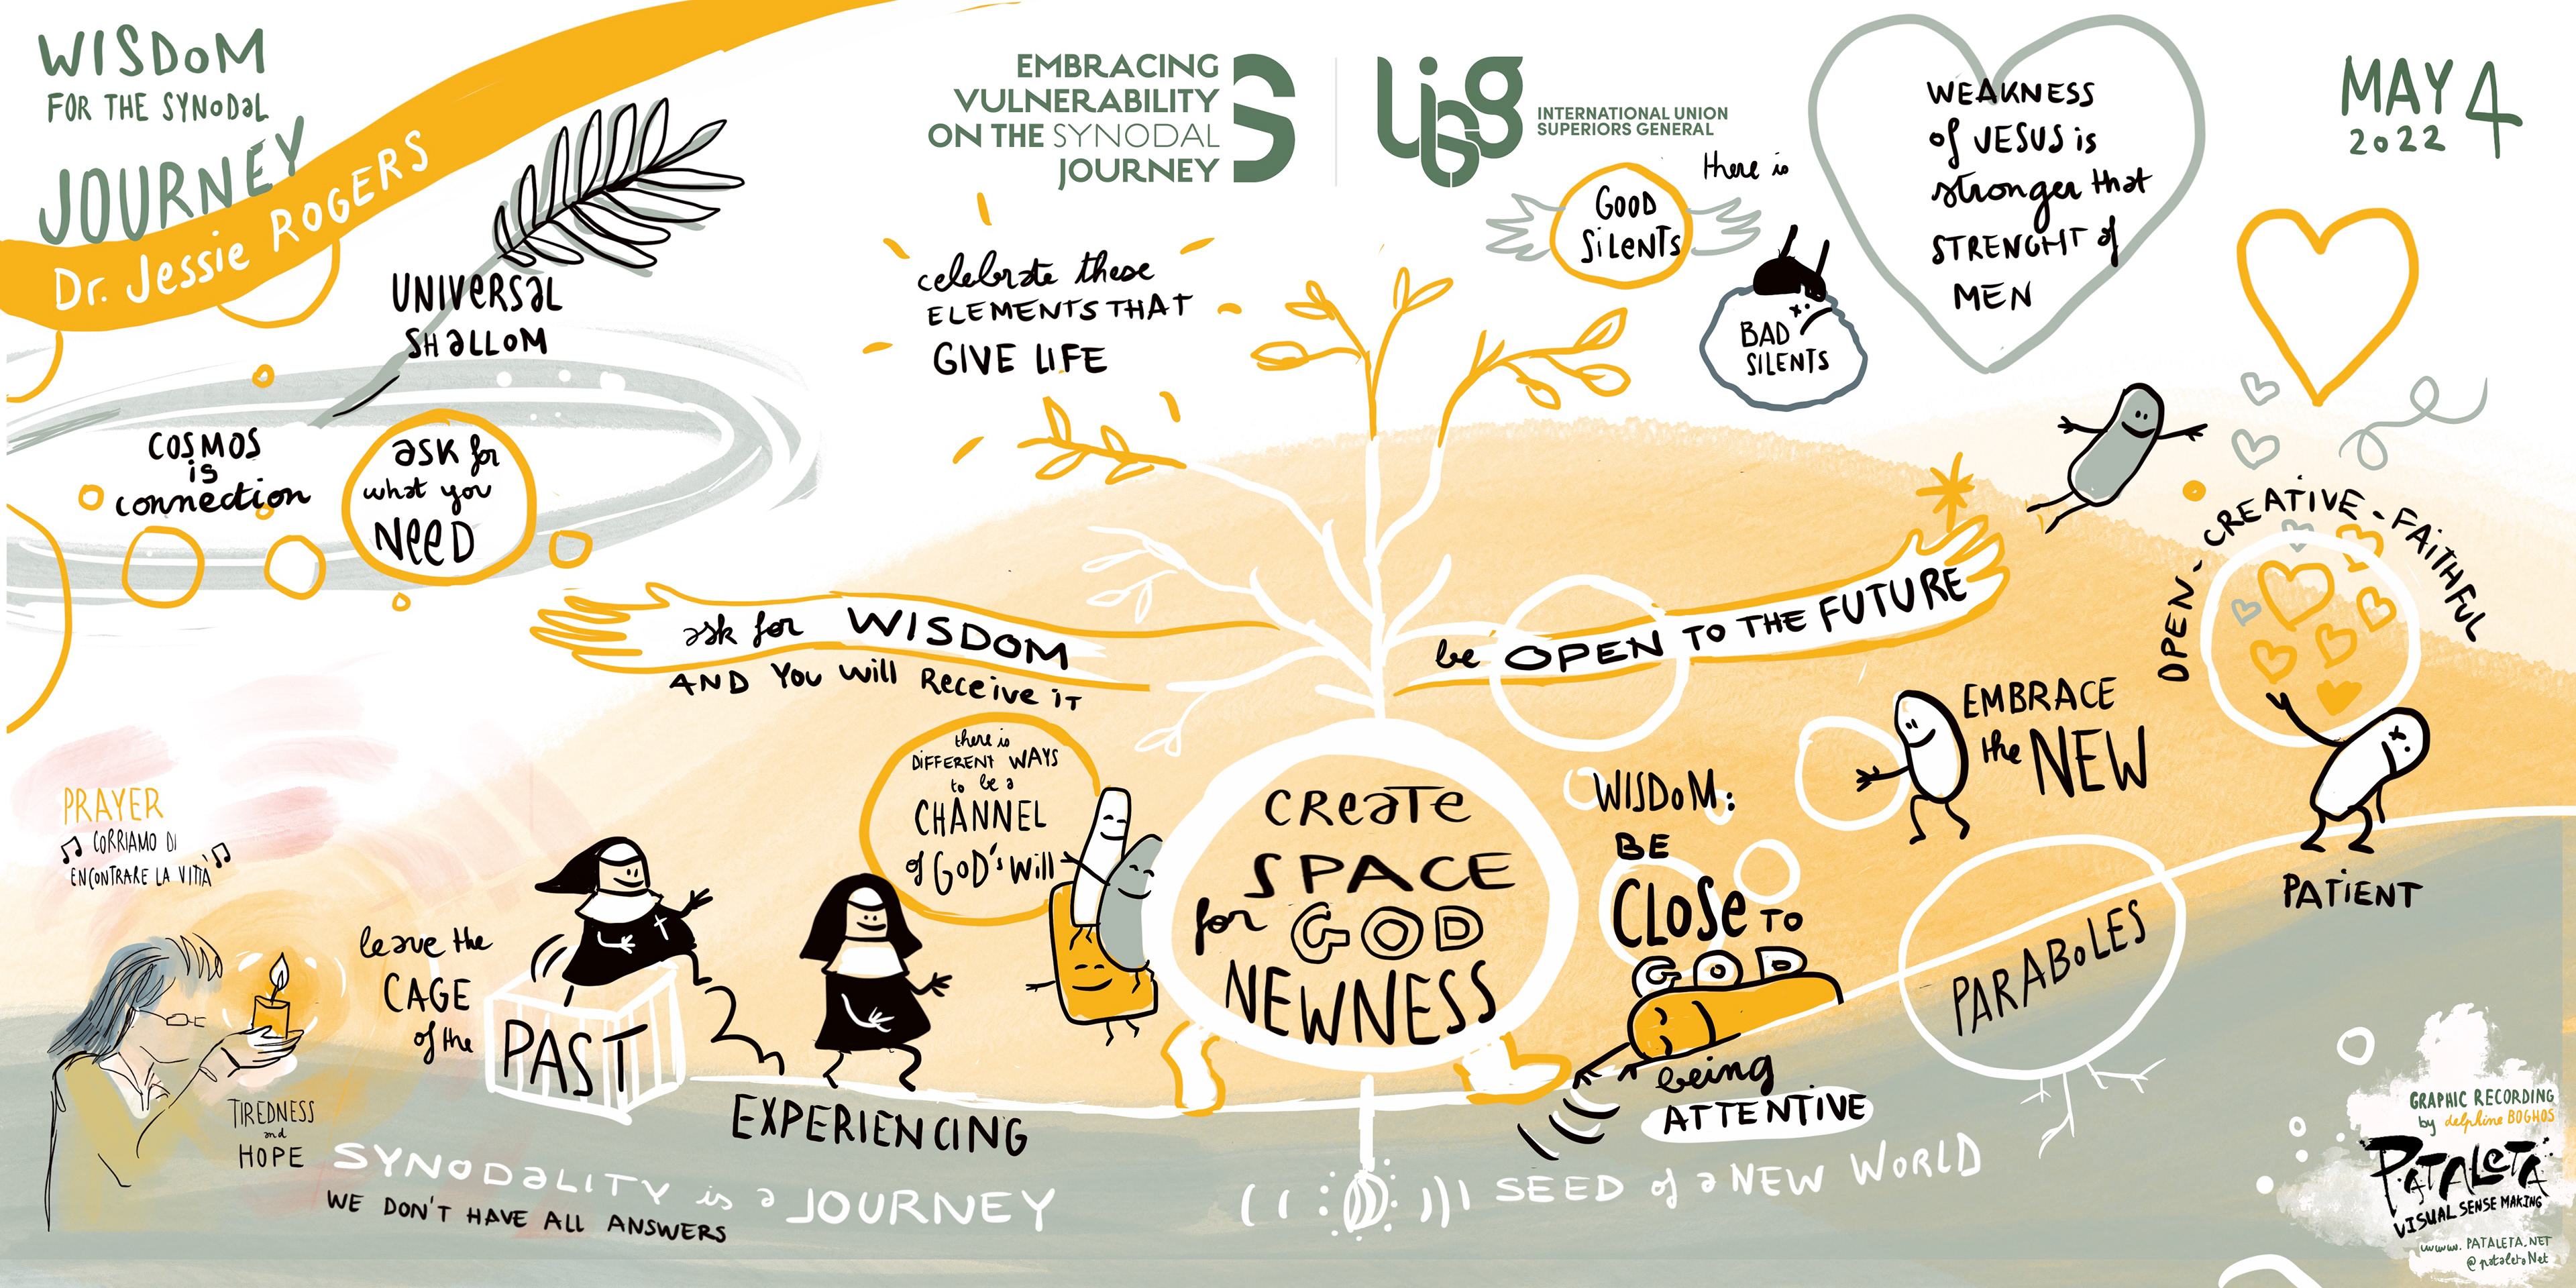 WISDOM
FOR THE SYNODAL
JOURNEY
Dr. Jessie ROGERS
EMBRACING
VULNERABILITY
ON THE SYNODAL
JOURNEY
S
uisg
INTERNATIONAL UNION
SUPERIORS GENERAL
MAY 4
2022
WEAKNESS
of JESUS is
stronger that
STRENGHT of
MEN
there is
GOOD
SILENTS
BAD
SILENTS
UNIVERSAL
SHALLOM
celebrate these
ELEMENTS THAT
GIVE LIFE
COSMOS
is
connection
ask for
what you
NEED
ask for WISDOM
AND You will Receive iT
be OPEN TO THE FUTURE
OPEN - CREATIVE - FAITHFUL
EMBRACE
the NEW
PATIENT
PRAYER
CORRIAMO DI
ENCONTRARE LA VITIA
TIREDNESS
and
HOPE
leave the
CAGE
of the
PAST
EXPERIENCING
there is
DIFFERENT WAYS
to be a
CHANNEL
of GOD's will
CREATE
SPACE
for GOD
NEWNESS
WISDOM:
BE
CLOSE TO
GOD
being
ATTENTIVE
PARABOLES
SYNODALITY is a JOURNEY
WE DON'T HAVE ALL ANSWERS
SEED of a NEW WORLD
GRAPHIC RECORDING
by delphine BOGHOS
PATALETA
VISUAL SENSE MAKING
www. PATALETA.NET
@pataletaNet